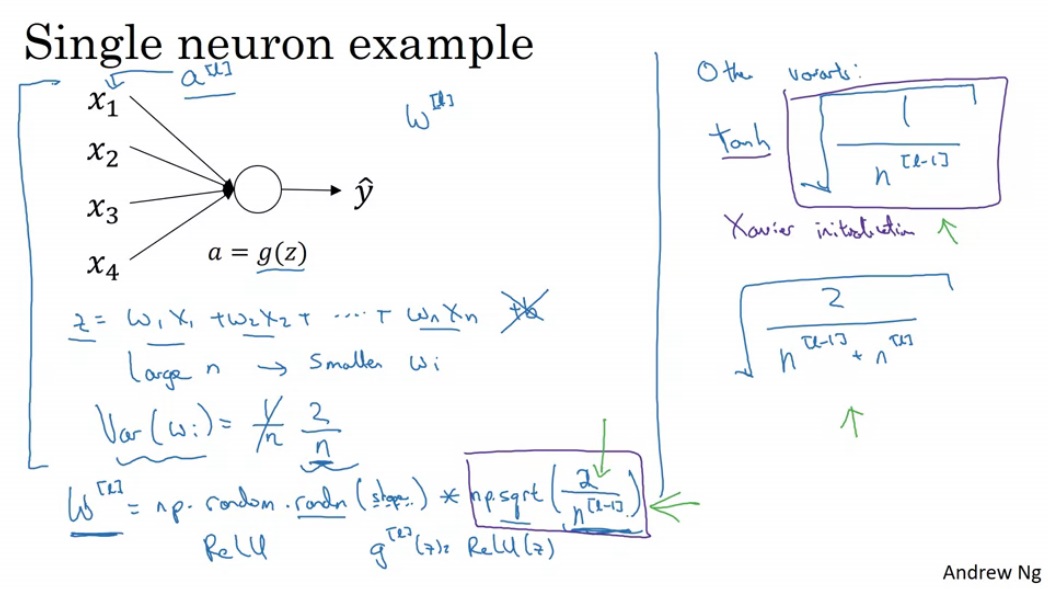 Single neuron example
x₁
a^[l]
x₂
x₃
x₄
ŷ
a = g(z)
w^[l]
z = w₁x₁ + w₂x₂ + ..... + wₙxₙ + b
Large n → Smaller wᵢ
Var(wᵢ) = 1/n 2/n
W^[l] = np.random.randn(shape) * np.sqrt(2/n^[l-1])
ReLU g^[l](z) = ReLU(z)
Other variants:
tanh √(1/n^[l-1])
Xavier initialization
√(2/(n^[l-1] + n^[l]))
Andrew Ng